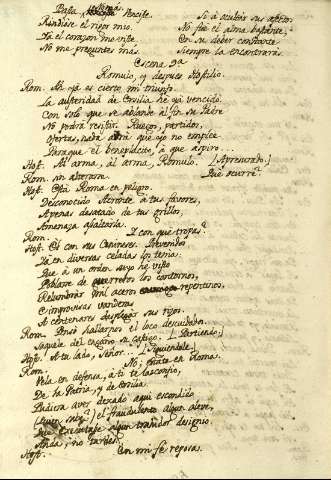 Basta
Rindiose el rigor mio.
Ya el corazon me viste
No me preguntes más.
Si á ocultar sus afectos
No fue el alma bastante,
En su deber constante
Siempre la encontrarás.
Escena 9ª
Romulo, y despues Hostilio.
Rom. Ah ya es cierto mi triunfo.
La austeridad de Ersilia he ya vencido.
Con solo que se ablande al fin su Padre
No podrá resistir. Ruegos, partidos,
ofertas, nada habrá que yo no emplee
Para que el beneplacito, á que aspiro...
Host. Al arma, al arma, Romulo. [Apresurado.]
Rom. sin alterarse Qué ocurre?
Host. Está Roma en peligro.
Desconocido Acronte á tus favores,
Apenas desatado de tus grillos,
Amenaza asaltarla.
Rom. Y con qué tropas?
Host. Es con sus Ceninenses.
Ya en diversas celadas los tenia.
Que á un orden suyo he visto
Poblarse de guerreros los contornos,
Relumbrar mil aceros repentinos,
E improvisas vanderas
A centenares desplegar sus rizos.
Rom. Pensó hallarnos el loco descuidados.
Pague el engaño su castigo. [Partiendo.]
Host. A tu lado, Señor... [Siguiendole.]
Rom. No; quedate en Roma.
Vela en defensa, á ti te las confio,
De la Patria, y de Ersilia.
Pudiera aver dexado aqui escondido
(Quien sabe?) el fraudulento algun aleve,
Que executase algun traidor designio.
Anda; no tardes.
Host. En mi fé reposa.